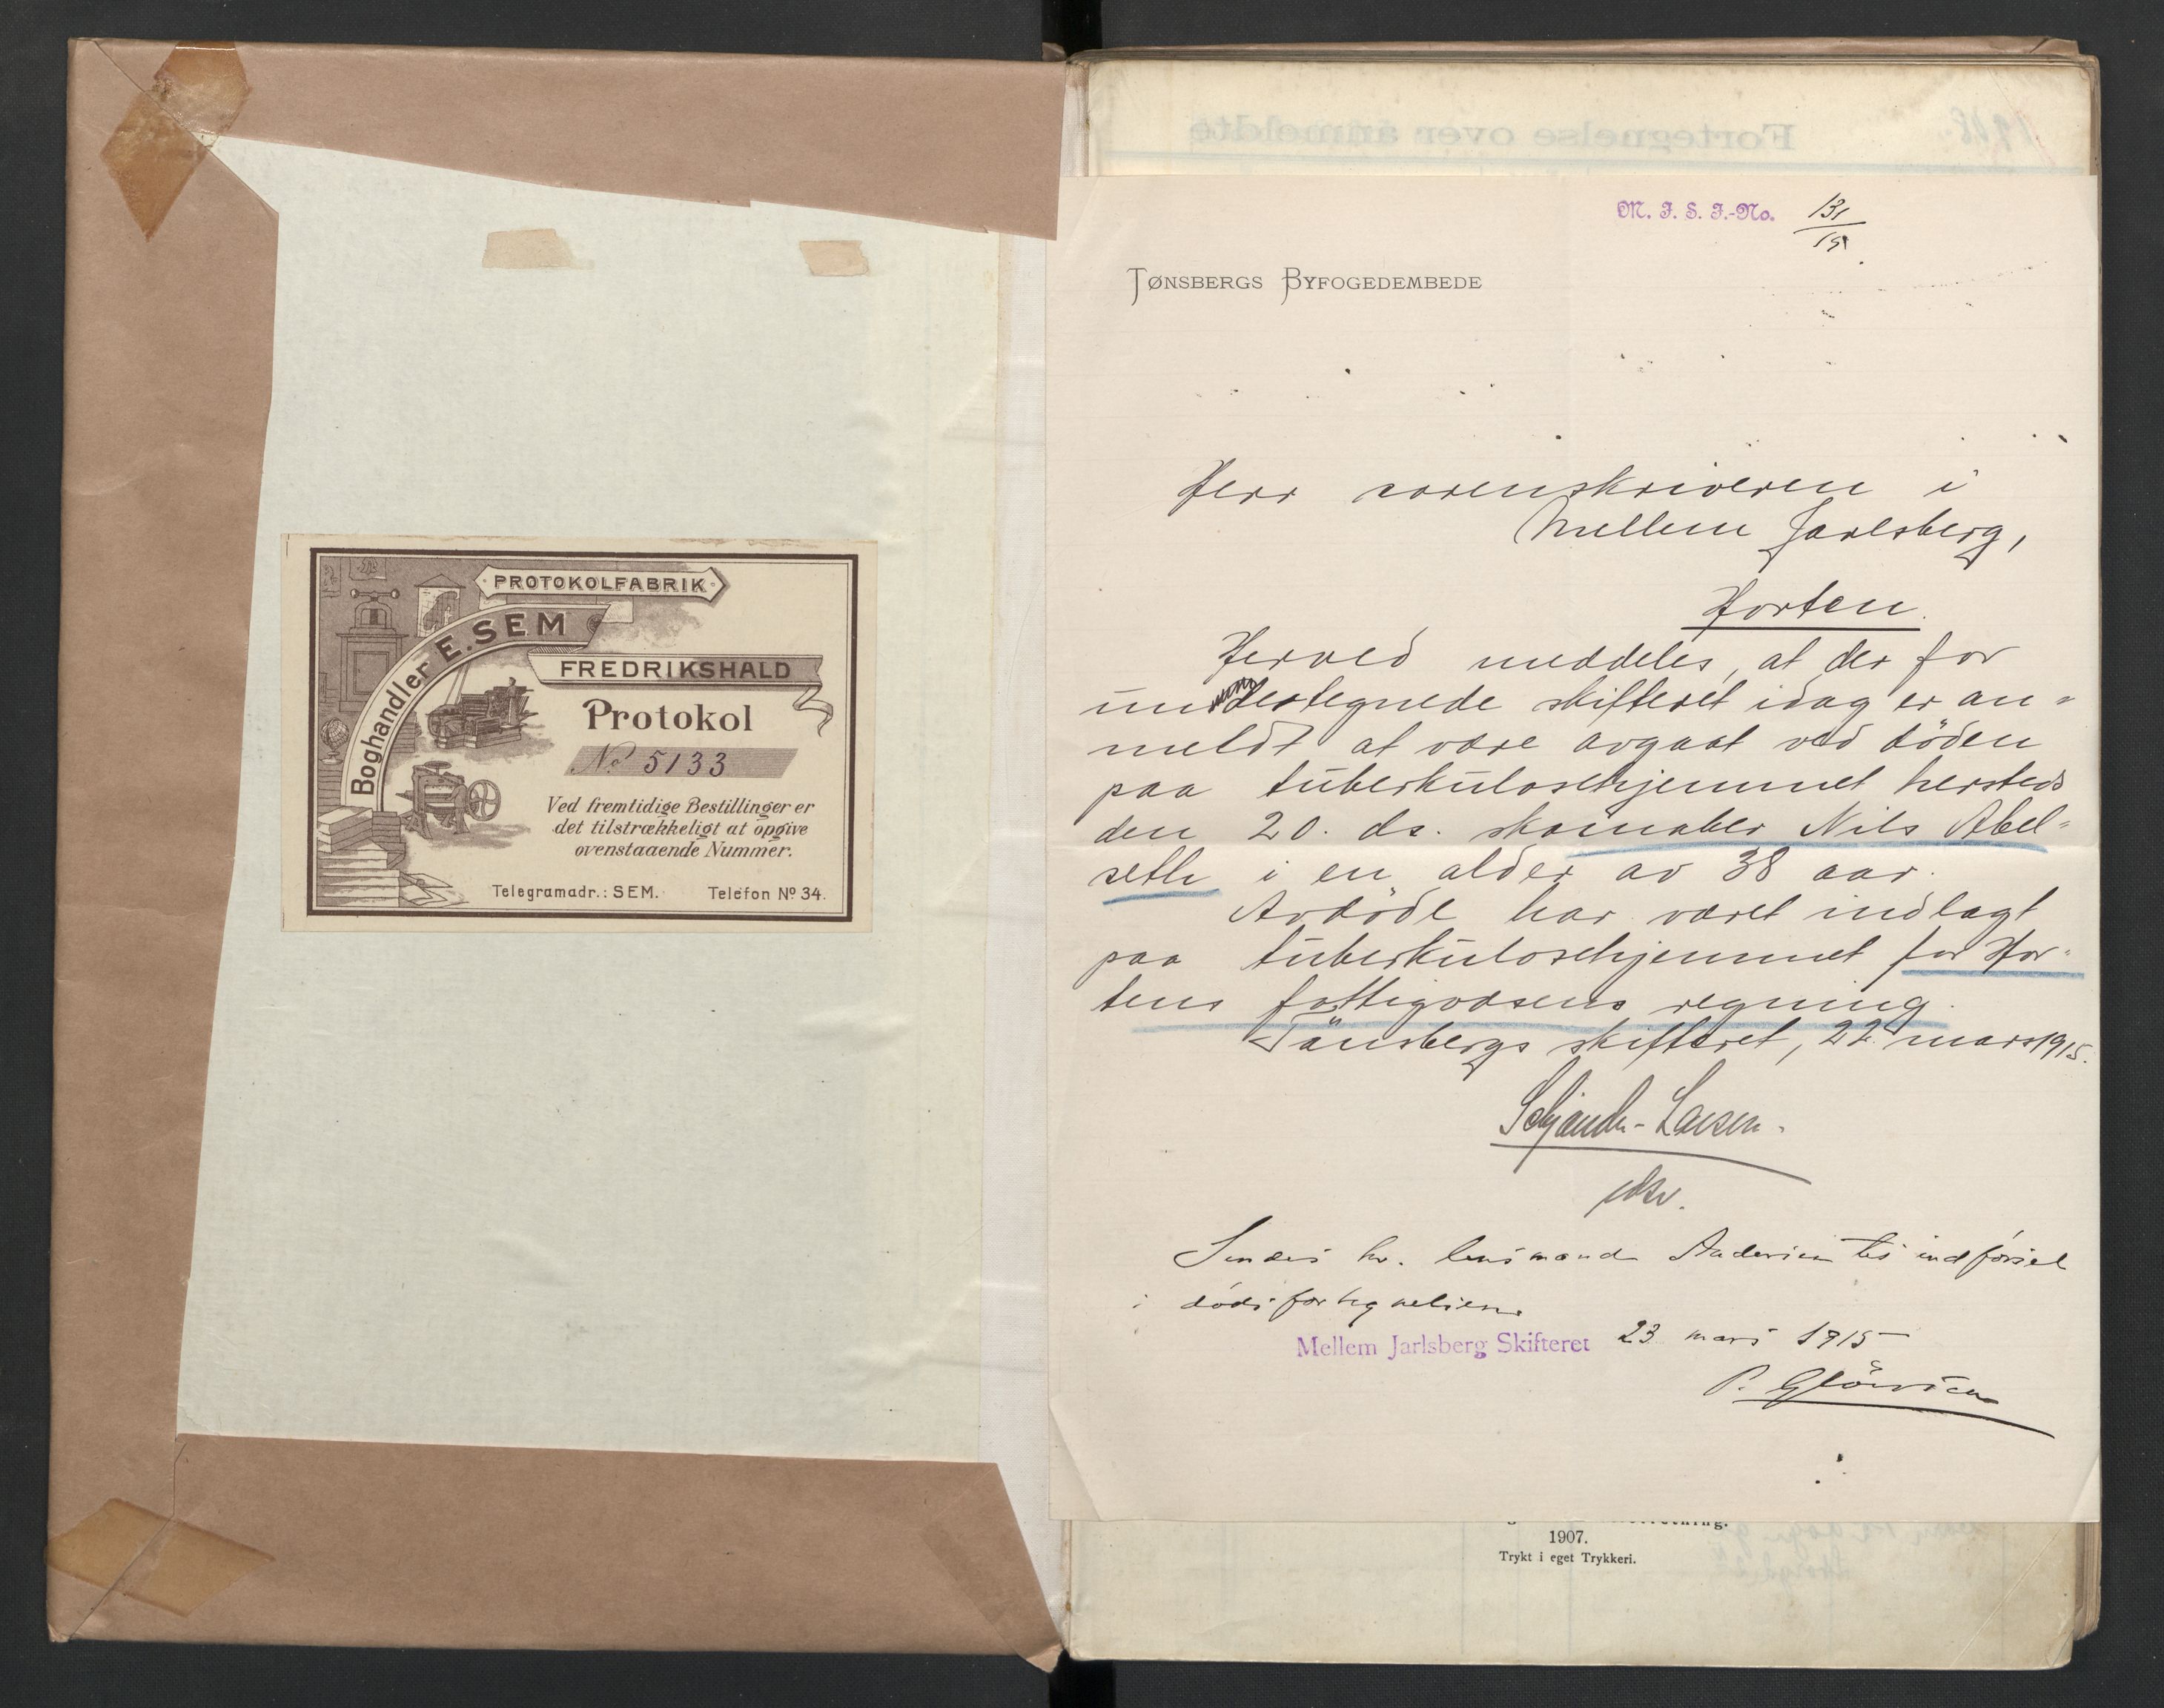 PROTOKOLFABRIK
Boghandler E. SEM
FREDRIKSHALD
Protokol
No 5133
Ved fremtidige Bestillinger er
det tilstrækkeligt at opgive
ovenstaaende Nummer.
Telegramadr.: SEM. Telefon No 34.
Fortegnelse over anmeldte
M. J. S. J.-No. 131/15
TØNSBERGS BYFOGEDEMBEDE
Herr sorenskriveren i
Mellem Jarlsberg,
Horten.
Herved meddeles, at der for
undertegnede skifteret idag er an-
meldt at være avgaat ved döden
paa tuberkulosehjemmet hersteds
den 20. ds. skomaker Nils Abel-
seth i en alder av 38 aar.
Avdöde har været indlagt
paa tuberkulosehjemmet for Hor-
tens fattigvæsens regning.
Tönsbergs skifteret, 22. mars 1915.
Schjander-Larsen.
Sendes hr. lensmand Andersen til indförsel
i dödsfortegnelsen.
Mellem Jarlsberg Skifteret 23 mars 1915
1907.
Trykt i eget Trykkeri.